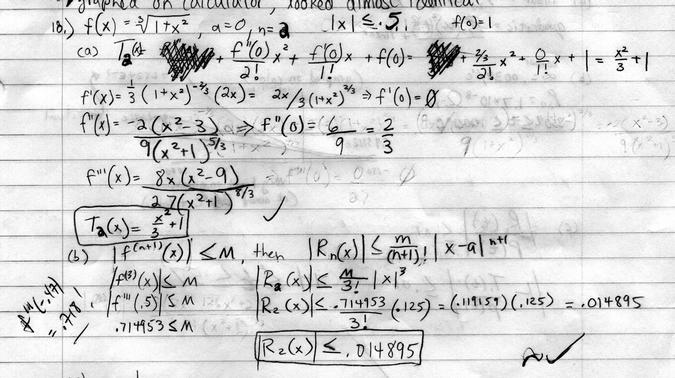 graphed on calculator, looked almost identical
18.) f(x) = ∛(1+x²), a=0, n=2 |x| ≤ .5, f(0)=1
(a) T₂(x) + f''(0)/2! x² + f'(0)/1! x + f(0) = + (2/3)/2! x² + 0/1! x + 1 = x²/3 + 1
f'(x) = 1/3 (1+x²)^(-2/3) (2x) = 2x/3(1+x²)^(2/3) ⇒ f'(0) = 0
f''(x) = -2(x²-3)/9(x²+1)^(5/3) ⇒ f''(0) = 6/9 = 2/3
f'''(x) = 8x(x²-9)/27(x²+1)^(8/3) ✓
T₂(x) = x²/3 + 1
(b) |f^(n+1)(x)| ≤ M, then |Rn(x)| ≤ m/(n+1)! |x-a|^(n+1)
|f^(3)(x)| ≤ M |R₂(x)| ≤ M/3! |x|³
|f'''(.5)| ≤ M |R₂(x)| ≤ .714953/3! (.125) = (.119159)(.125) = .014895
.714953 ≤ M
|R₂(x)| ≤ .014895